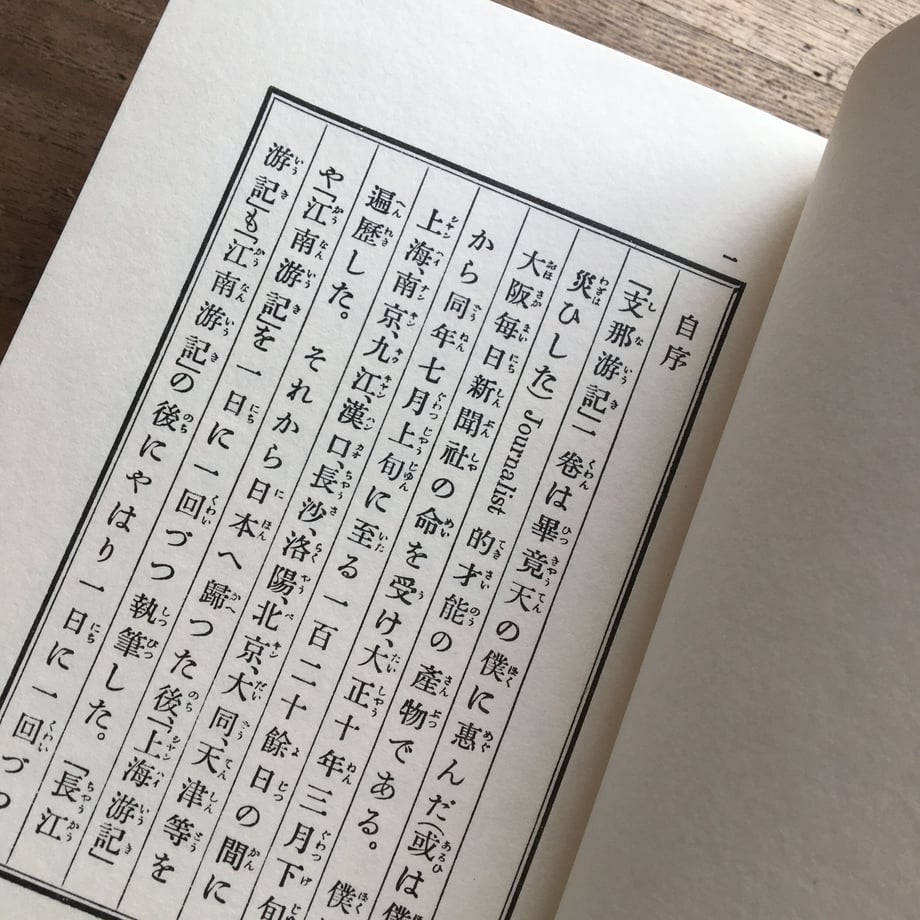 一
自序
「支那游記」一卷は畢竟天の僕に惠んだ(或は僕
災ひした)Journalist 的才能の產物である。 僕
大阪每日新聞社の命を受け、大正十年三月下旬
から同年七月上旬に至る一百二十餘日の間に
上海、南京、九江、漢口、長沙、洛陽、北京、大同、天津等を
遍歷した。 それから日本へ歸つた後、「上海游記」
や「江南游記」を一日に一回づつ執筆した。「長江
游記」も「江南游記」の後にやはり一日に一回づつ